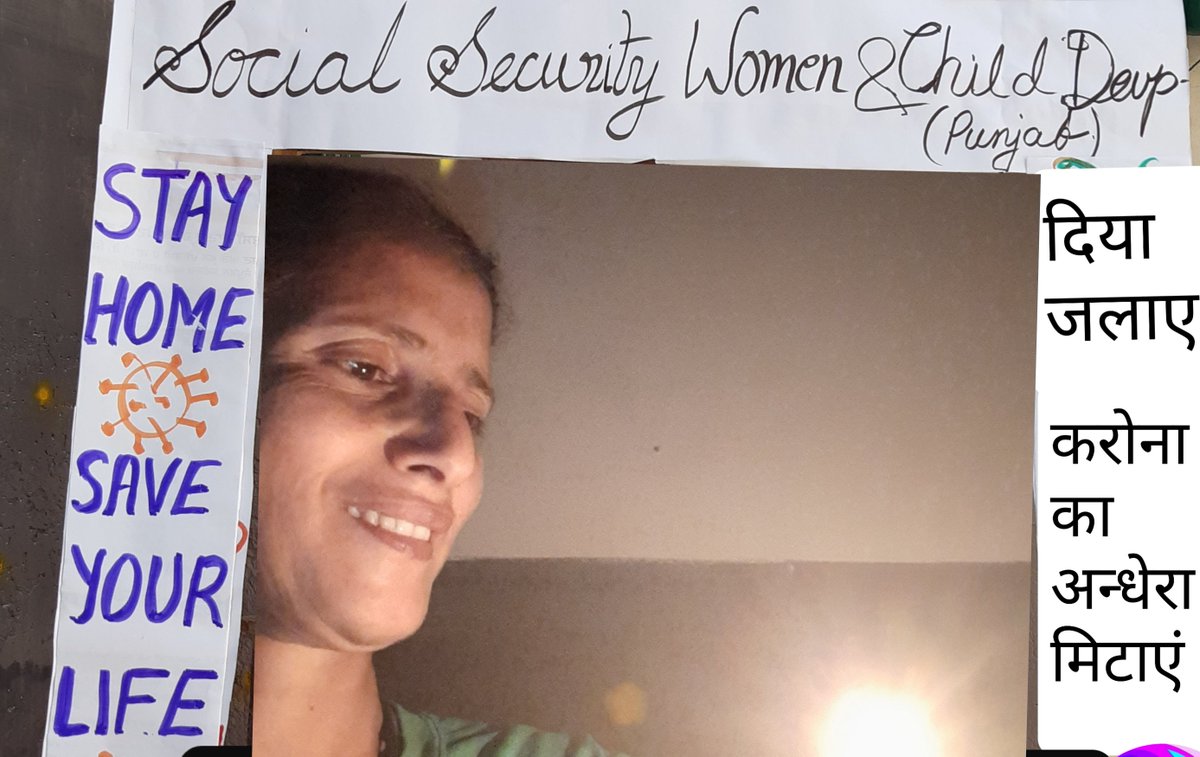 Social Security Women & Child Devp.
(Punjab)
STAY
HOME
SAVE
YOUR
LIFE
दिया
जलाए
करोना
का
अन्धेरा
मिटाएं